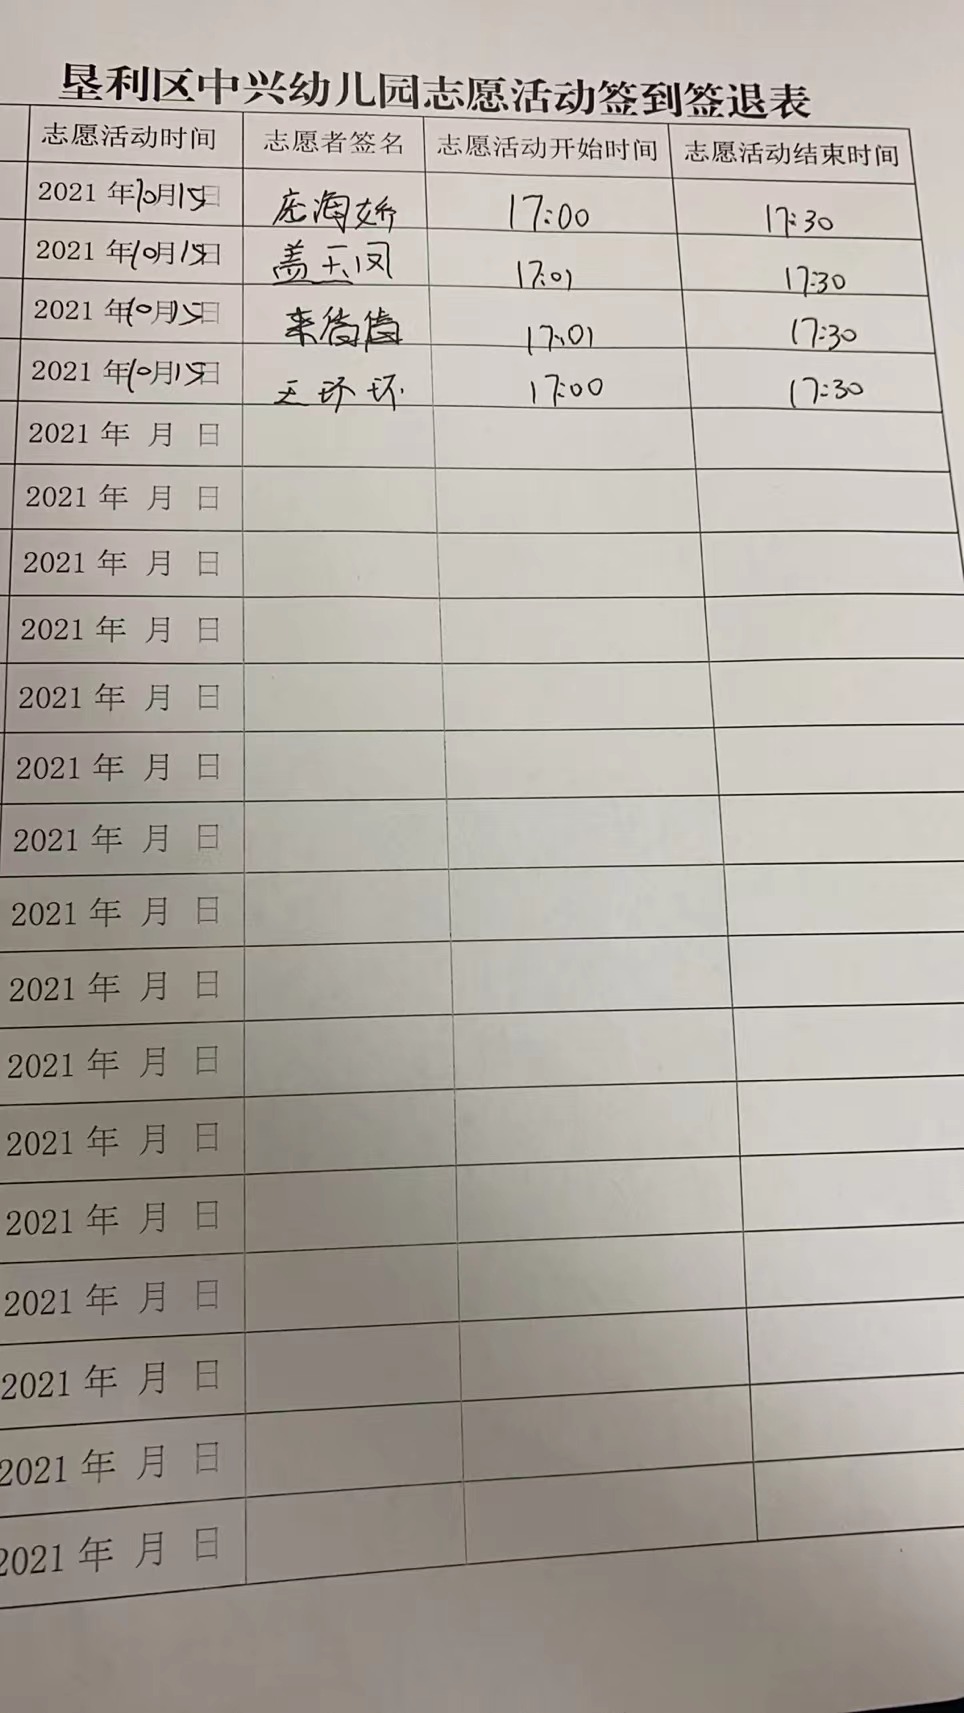 垦利区中兴幼儿园志愿活动签到签退表
志愿活动时间 志愿者签名 志愿活动开始时间 志愿活动结束时间
2021 年10月15日 17:00 17:30
2021 年10月15日 盖玉凤 17:01 17:30
2021 年10月15日 来倩倩 17:01 17:30
2021 年10月15日 王环环 17:00 17:30
2021 年 月 日
2021 年 月 日
2021 年 月 日
2021 年 月 日
2021 年 月 日
2021 年 月 日
2021 年 月 日
2021 年 月 日
2021 年 月 日
2021 年 月 日
2021 年 月 日
2021 年 月 日
2021 年 月 日
2021 年 月 日
2021 年 月 日
2021 年 月 日